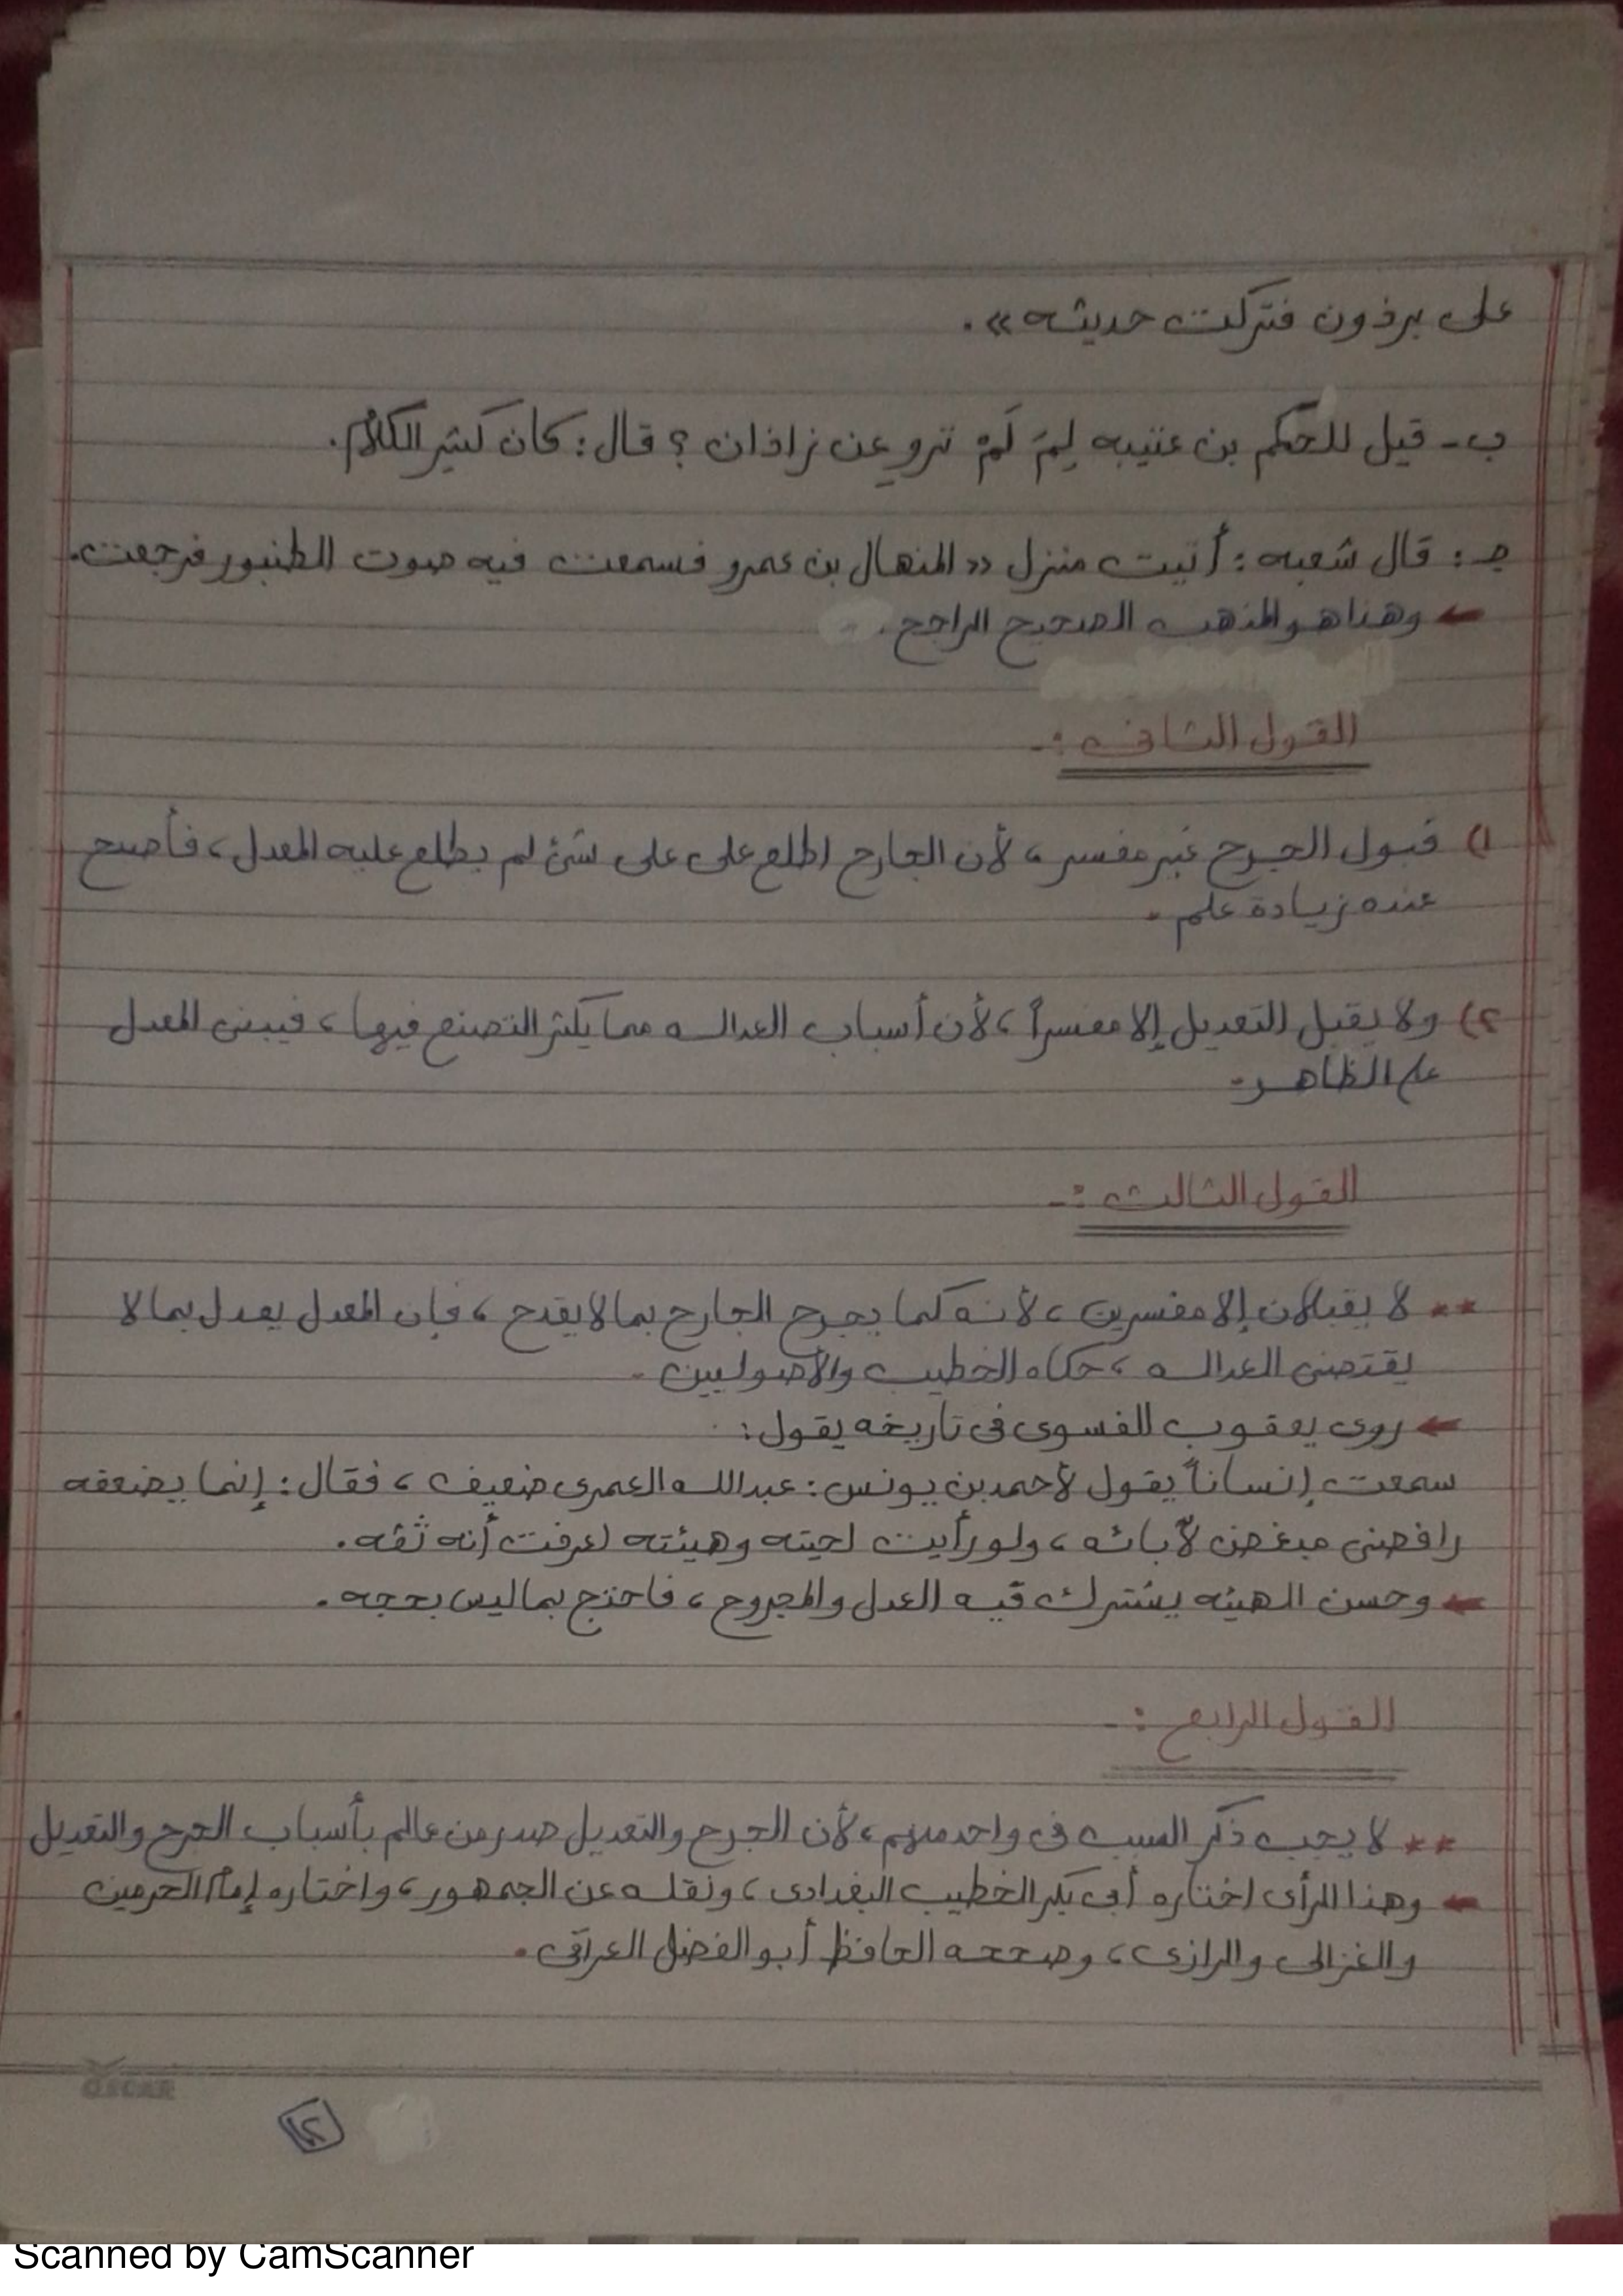 على برذون فتركت حديثه».
ب- قيل للحكم بن عتيبه لِمَ لَمْ تروِ عن زاذان ؟ قال : كان كثير الكلام.
جـ : قال شعبه : أتيت منزل «المنهال بن عمرو فسمعت فيه صوت الطنبور فرجعت.
← وهذا هو المذهب الصحيح الراجح .
القول الثانى :-
١) قبول الجرح غير مفسر ، لأن الجارح اطلع على على شئ لم يطلع عليه المعدل ، فأصبح
عنده زيادة علم .
٢) ولا يقبل التعديل إلا مفسراً ، لأن أسباب العداله مما يكثر التصنع فيها ، فيبنى المعدل
على الظاهر .
القول الثالث :-
** لا يقبلان إلا مفسرين ، لأنه كما يجرح الجارح بما لا يقدح ، فإن المعدل يعدل بما لا
يقتضى العداله ، حكاه الخطيب والأصوليين .
← روى يعقوب الفسوى فى تاريخه يقول :
سمعت إنساناً يقول لأحمد بن يونس : عبدالله العمرى ضعيف ، فقال : إنما يضعفه
رافضى مبغض لآبائه ، ولو رأيت لحيته وهيئته لعرفت أنه ثقه .
← وحسن الهيئه يشترك فيه العدل والمجروح ، فاحتج بما ليس بحجه .
القول الرابع :-
** لا يجب ذكر السبب فى واحد منهم ، لأن الجرح والتعديل صدر من عالم بأسباب الجرح والتعديل
← وهذا الرأى اختاره أبى بكر الخطيب البغدادى ، ونقله عن الجمهور ، واختاره إمام الحرمين
والغزالى والرازى ، وصححه الحافظ أبو الفضل العراقى .
OSCAR
٢
Scanned by CamScanner